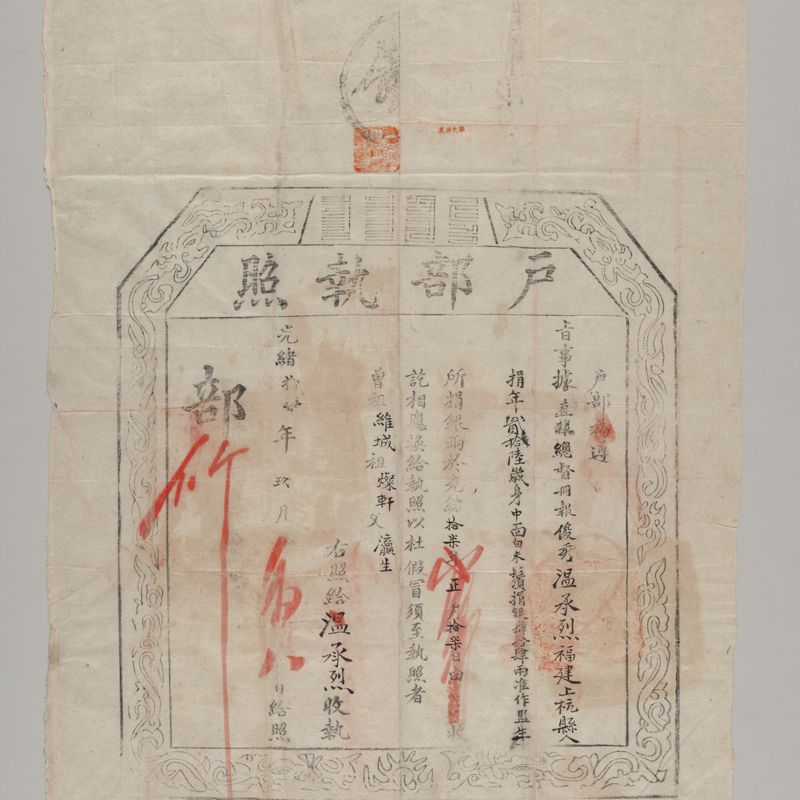 戶部執照
戶部為遵
旨事據直隸總督冊報俊秀溫承烈福建上杭縣人
捐年貳拾陸歲身中面白未鬚捐銀肆拾肆兩准作監生
所捐銀兩於光緒拾柒年正月拾柒日由
訖相應換給執照以杜假冒須至執照者
曾祖維城祖燦軒父瀛生
右照給溫承烈收執
光緒年玖月日給照
部
行